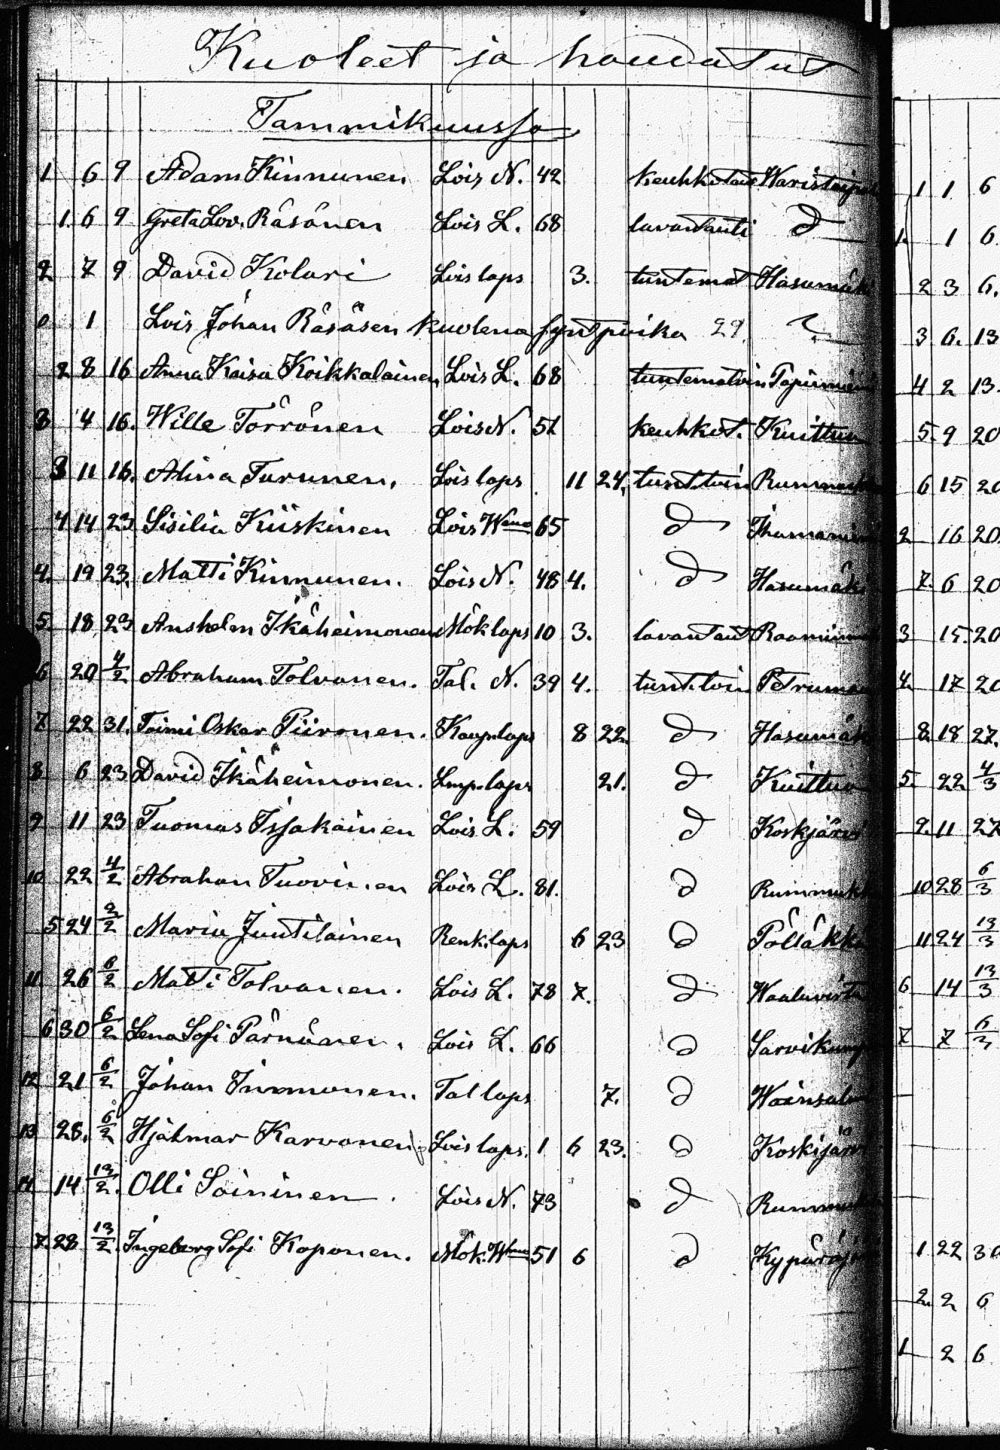 Kuolleet ja haudatut
Tammikuussa
1 6 9 Adam Kinnunen Lois N. 42 keuhkotau
1. 6 9 Greta Lov. Räsänen Lois L. 68 lavantauti d
2 7 9 David Kolari Lois laps 3. tuntemat Hasumäk
0 1 Lois Johan Räsäsen kuolena synt poika 29.
2 8 16 Anna Kaisa Koikkalainen Lois L. 68 tuntematoin
3 4 16. Wille Törrönen Lois N. 51 keuhkot. Kuittua
3 11 16. Alina Turunen. Lois laps 11 24. tunt.toin Rummuk
4 14 23 Sisilia Kiiskinen Lois W 65 d
4. 19 23. Matti Kinnunen. Lois N. 48 4. d Hasumäk
5. 18 23 Anshelm Ikäheimonen Mök laps 10 3. lavantaut
6 20 4/2 Abraham Tolvanen. Tal. N. 39 4. tunt.toin Petruma
7 22 31. Toimi Oskar Piironen. Kaup.laps 8 22. d Hasumäk
8 6 23 David Ikäheimonen. Lmp.laps 21. d Kuittua
9 11 23 Tuomas Issakainen Lois L. 59 d Koskjärv
10 22 4/2 Abraham Tuovinen Lois L. 81. d Rummukk
5 24 2/2 Maria Juutilainen Renk.laps 6 23 d Pölläkkä
11 26 6/2 Matti Tolvanen. Lois L. 78 7. d Haaluvirta
6 30 6/2 Lena Sofi Pärnänen. Lois L. 66 d Sarvikump
12 21 6/2 Johan Immonen. Tal laps 7. d
13 28. 6/2 Hjalmar Karvonen Lois laps. 1 6 23. d Koskijärv
14 14 13/2. Olli Soininen. Lois N. 73 d Rummu
7. 28 13/2 Ingeborg Sofi Koponen. Mök. W 51 6 d Kypäräjä
1 1 6
1. 1 6.
2 3 6.
3 6. 13
4 2 13.
5. 9 20
6 15 20
2 16 20.
7. 6 20
3 15. 20
4. 17 20
8. 18 27.
5. 22 4/3
9. 11 27
10 28 6/3
11 24 13/3
6 14 13/3
7 7 6/3
1 22 30
2. 2 6
1 2 6